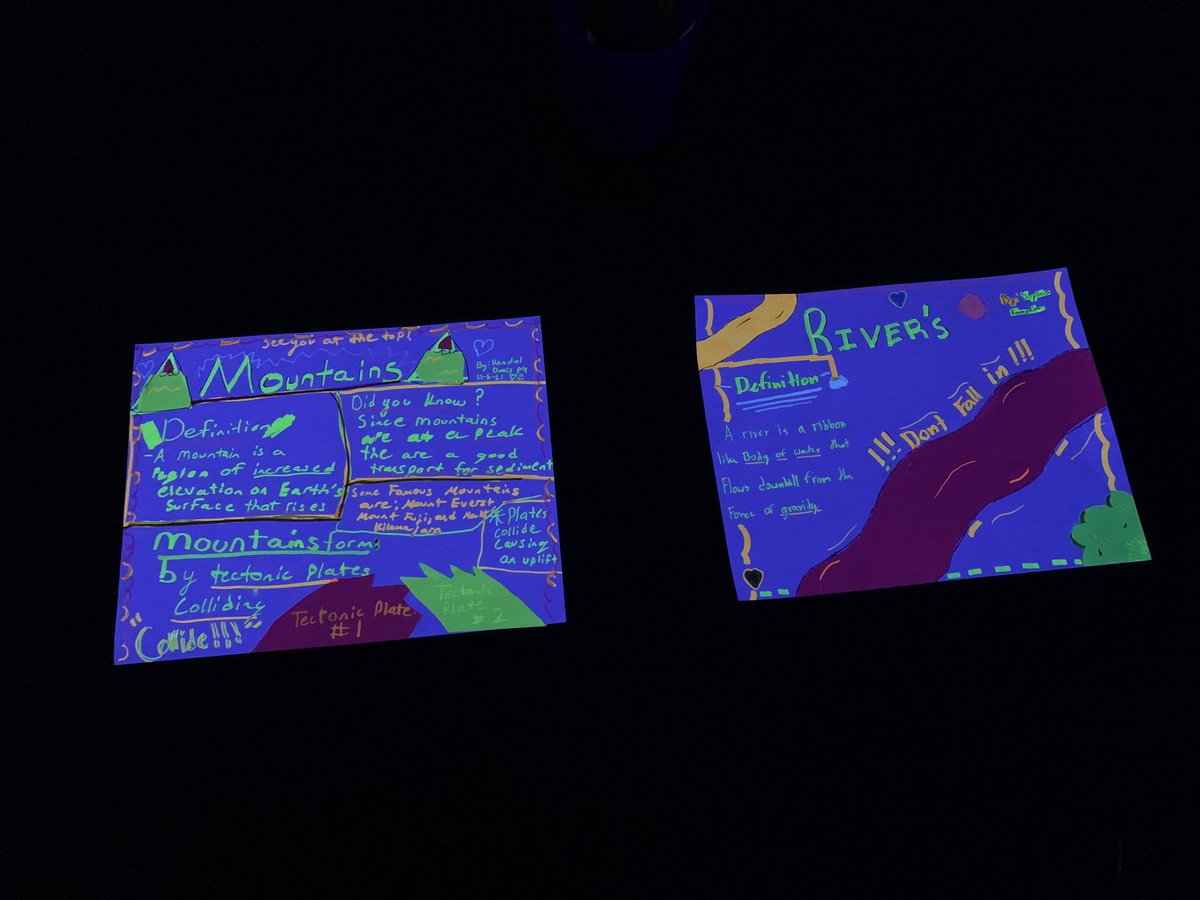 See you at the top!
Mountains
By: Kendal
Davis P4
11-5-21
Definition
-A mountain is a
Region of increased
elevation on Earth's
Surface that rises
Did you know?
Since mountains
are at a peak
the are a good
transport for sediment
Some Famous Mountains
are; Mount Everst
Mount Fuji, and
* Plates
collide
Causing
an uplift
Mountains form
by tectonic plates
Colliding
"Collide!!!"
Tectonic Plate
#1
Tectonic
Plate
#2
RIVER'S
Definition
A river is a ribbon
like Body of water that
Flows downhill from the
Force of gravity
!!! Dont Fall in !!!